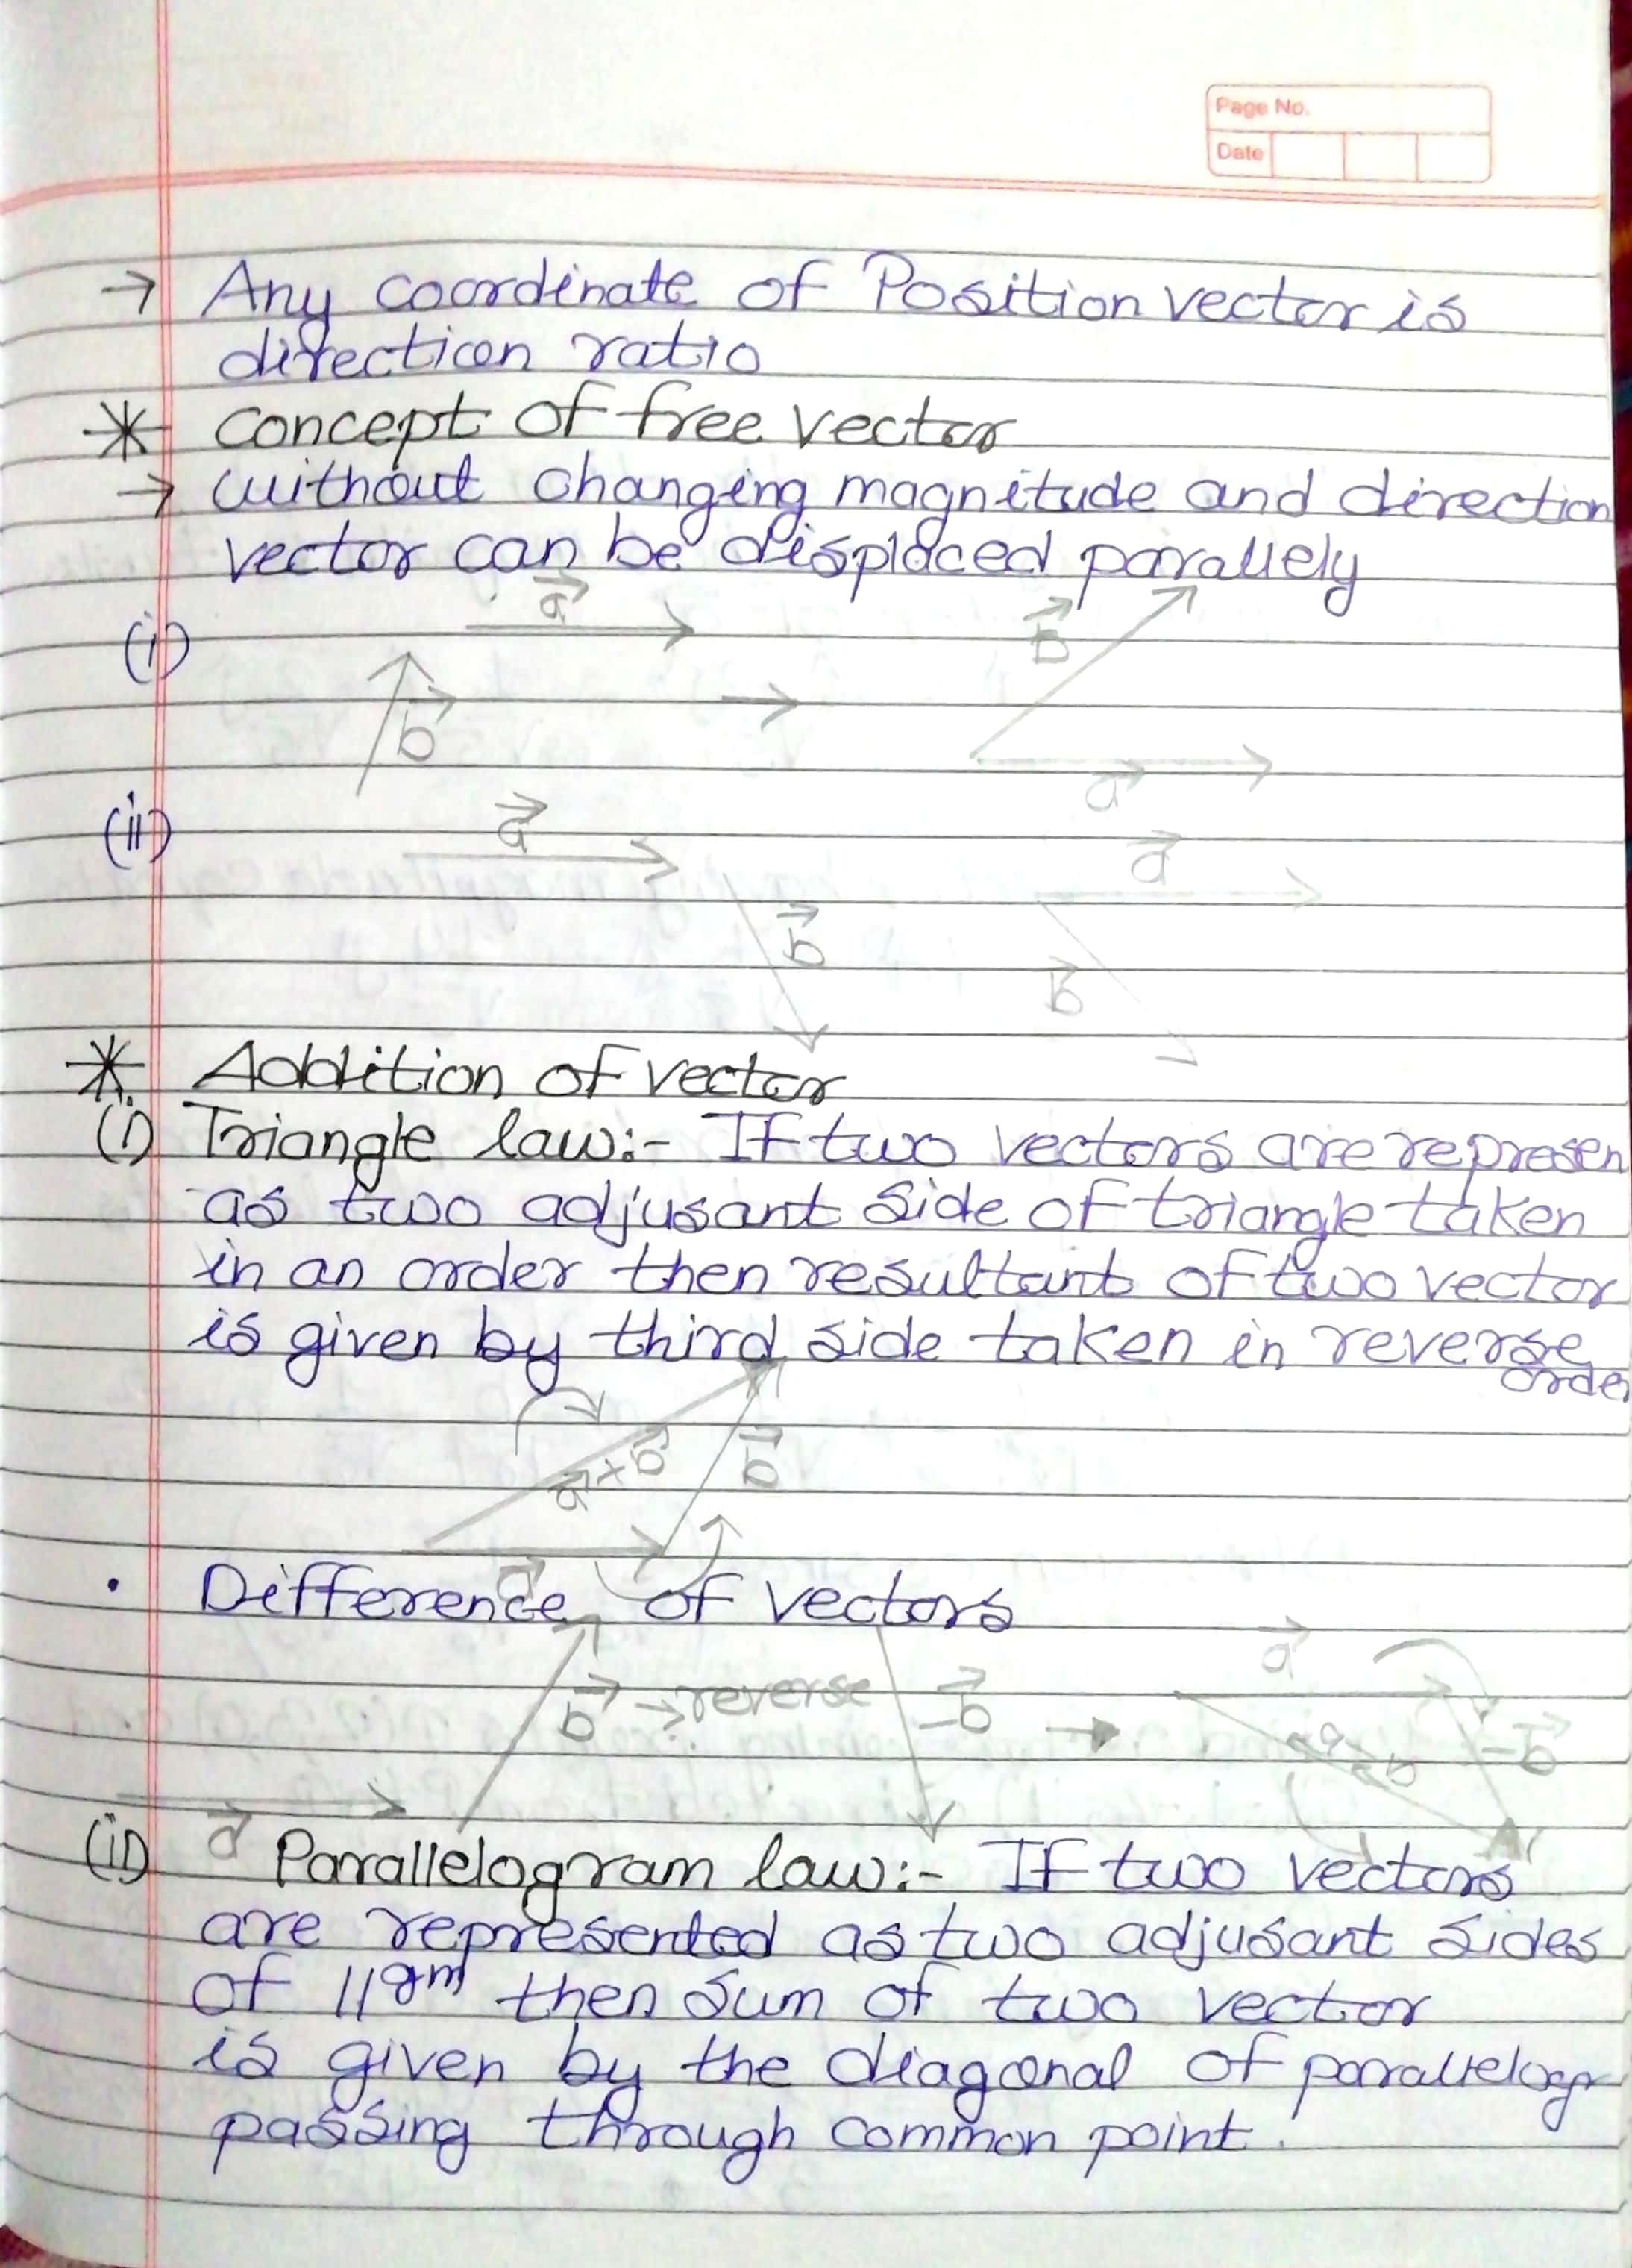 Page No.
Date
→ Any coordinate of Position vector is
direction ratio
* Concept of free vector
→ without changing magnitude and direction
vector can be displaced parallely
(i) a⃗ b⃗ → b⃗ a⃗
(ii) a⃗ b⃗ a⃗ b⃗
* Addition of vector
(i) Triangle law:- If two vectors are represen
as two adjusant side of triangle taken
in an order then resultant of two vector
is given by third side taken in reverse
order
a⃗+b⃗ b⃗
a⃗
• Difference of vectors
a⃗ b⃗ → reverse -b⃗ → a⃗ -b⃗
(ii) Parallelogram law:- If two vectors
are represented as two adjusant sides
of ||gm then sum of two vector
is given by the diagonal of parallelogr
passing through common point.